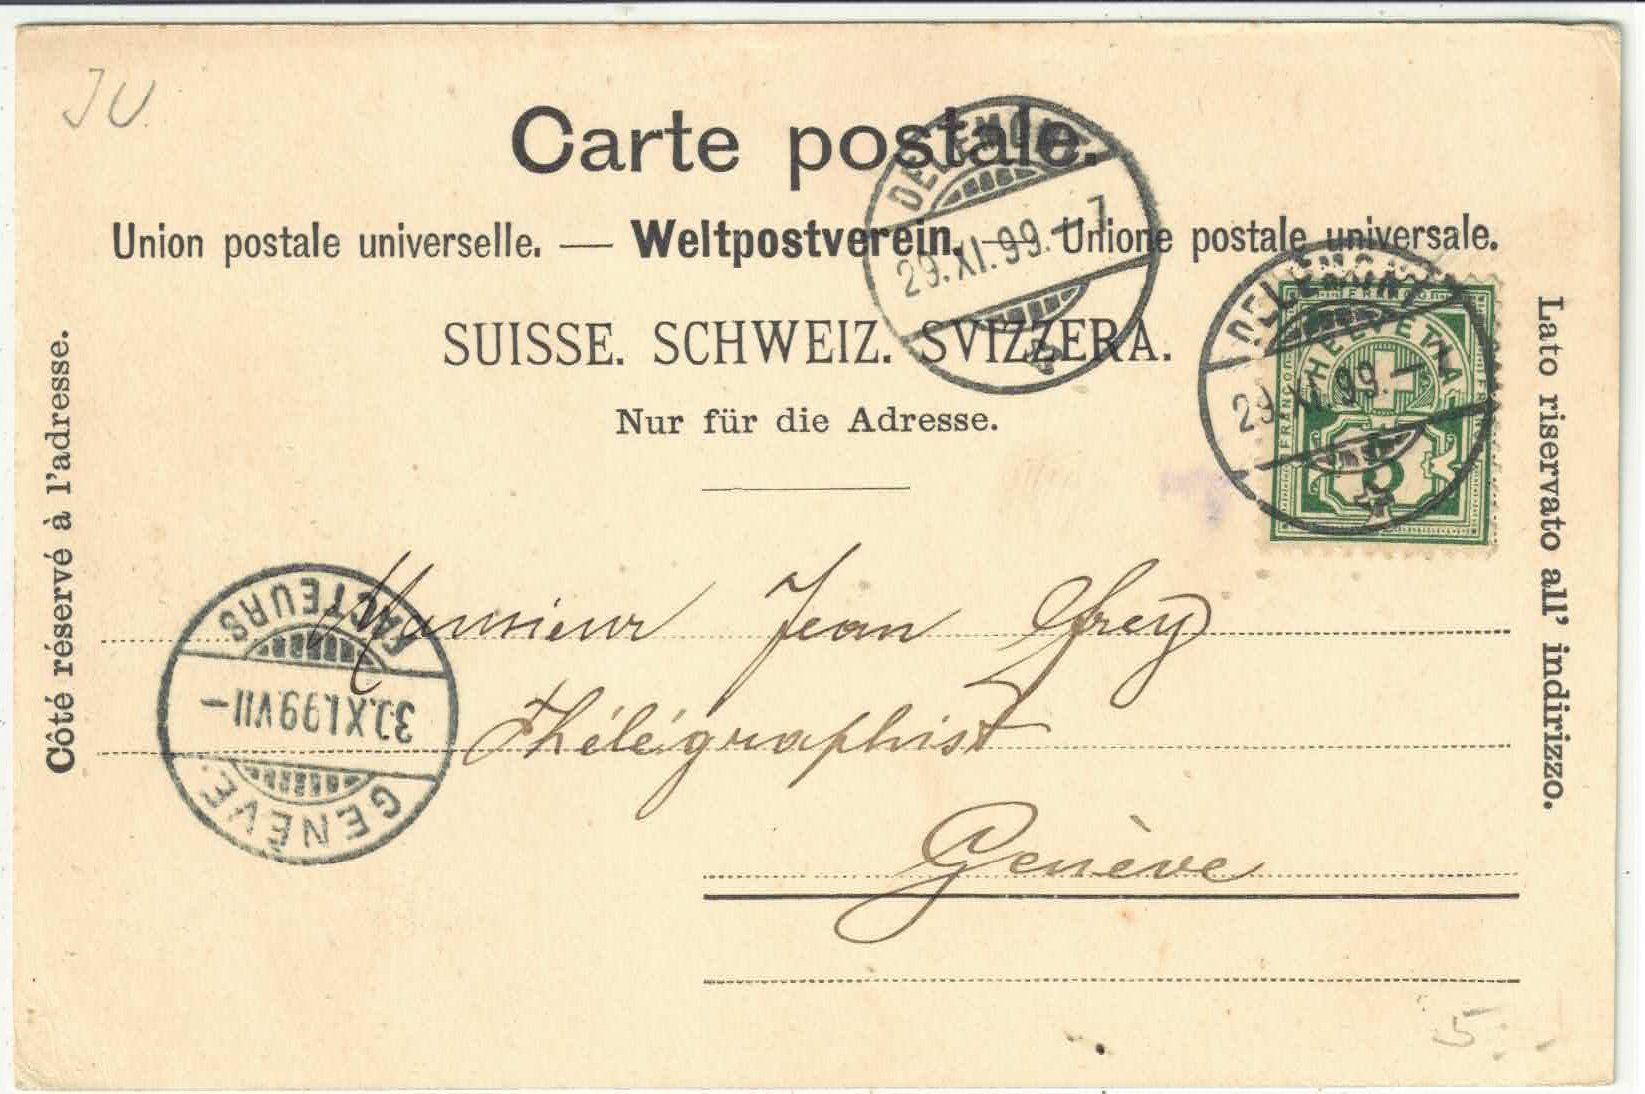 JU.
Carte postale.
DELÉMONT
29.XI.99.-7
Union postale universelle. — Weltpostverein. — Unione postale universale.
SUISSE. SCHWEIZ. SVIZZERA.
Nur für die Adresse.
DELÉMONT
29.XI.99.-
FRANCO
HELVETIA
5
Côté réservé à l'adresse.
Lato riservato all' indirizzo.
FACTEURS
30.XI.99.VII-
GENÈVE.
Monsieur Jean Frey
Thélégraphist
Genève
5.-